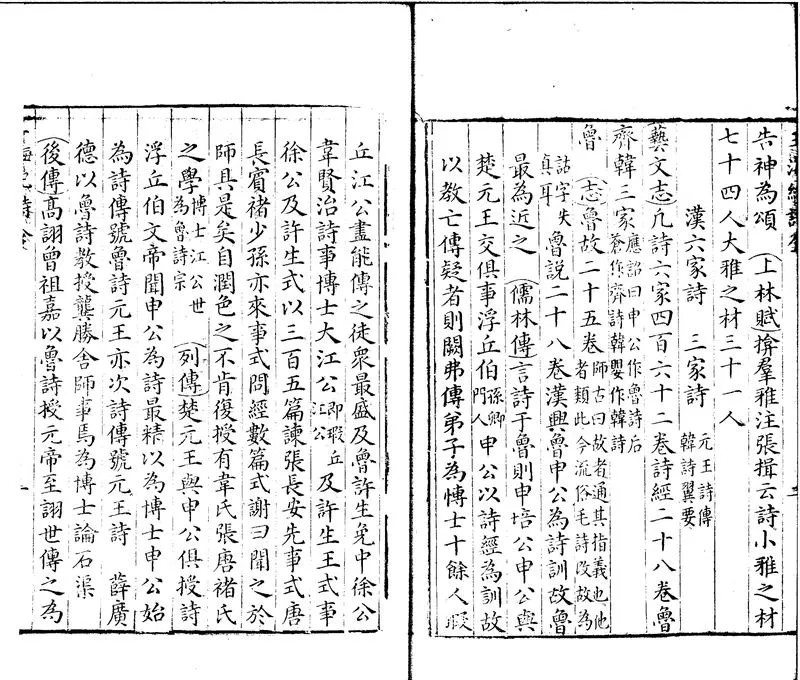 告神為頌 上林賦揜羣雅注張揖云詩小雅之材
七十四人大雅之材三十一人
漢六家詩 三家詩 元王詩傳韓詩翼要
藝文志凡詩六家四百六十二卷詩經二十八卷魯
齊韓三家應劭曰申公作魯詩后蒼作齊詩韓嬰作韓詩
魯 志魯故二十五卷師古曰故者通其指義也他皆類此今流俗毛詩改故為
詁字失真耳 魯說二十八卷漢興魯申公為詩訓故魯
最為近之 儒林傳言詩于魯則申培公申公與
楚元王交俱事浮丘伯孫卿門人申公以詩經為訓故
以教亡傳疑者則闕弗傳弟子為博士十餘人瑕
丘江公盡能傳之徒衆最盛及魯許生免中徐公
韋賢治詩事博士大江公即瑕丘江公及許生王式事
徐公及許生式以三百五篇諫張長安先事式唐
長賓褚少孫亦來事式問經數篇式謝曰聞之於
師具是矣自潤色之不肯復授有韋氏張唐褚氏
之學博士江公世為魯詩宗 列傳楚元王與申公俱授詩
浮丘伯文帝聞申公為詩最精以為博士申公始
為詩傳號魯詩元王亦次詩傳號元王詩 薛廣
德以魯詩教授龔勝舍師事焉為博士論石渠
後傳高詡曾祖嘉以魯詩授元帝至詡世傳之為